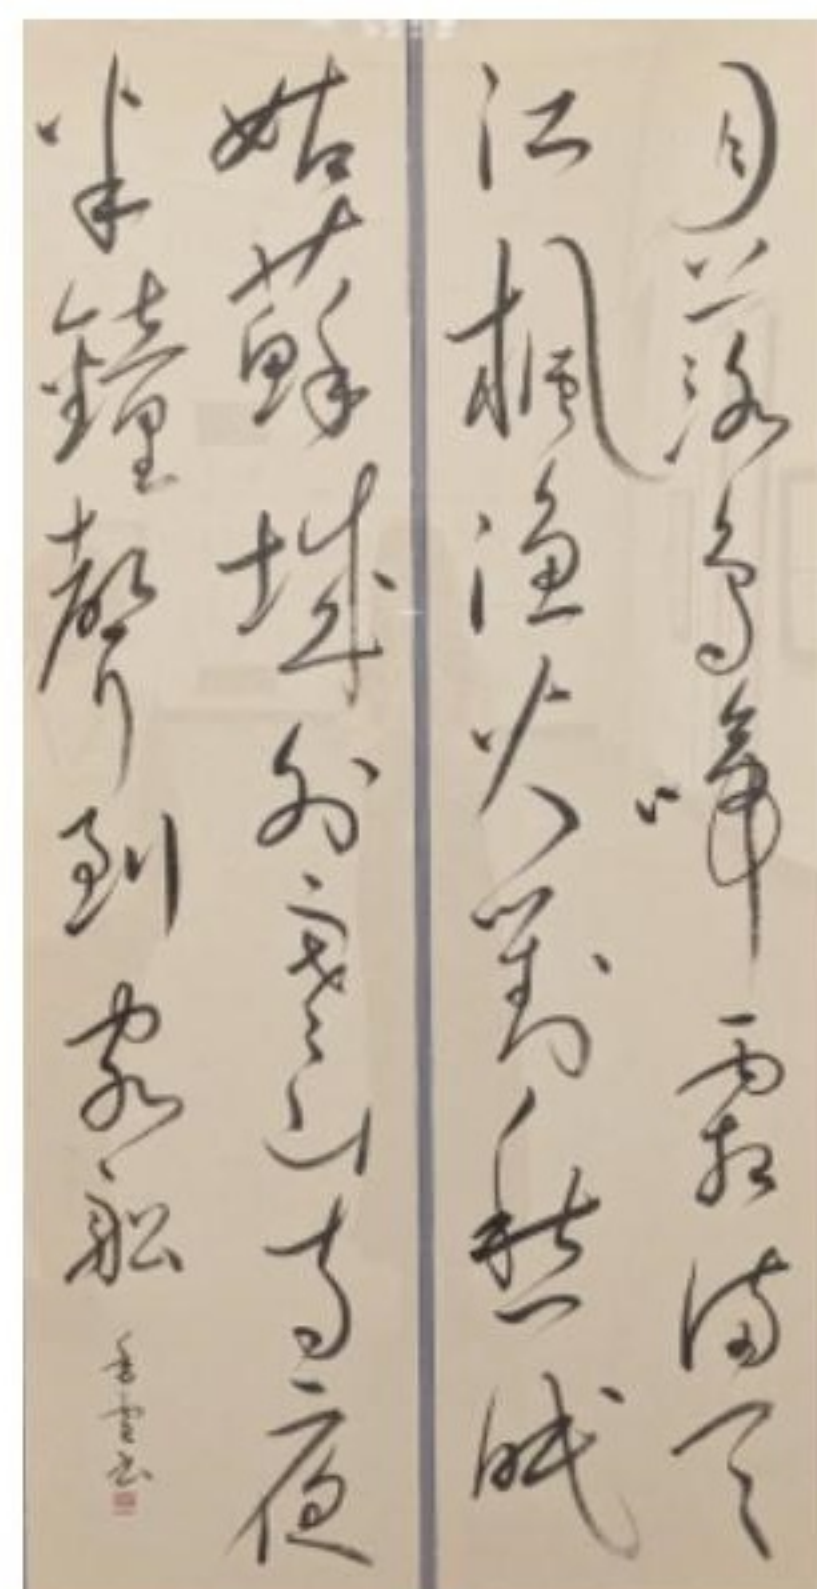 月落烏啼霜滿天
江楓漁火對愁眠
姑蘇城外寒山寺夜
半鐘聲到客舩
香雪書